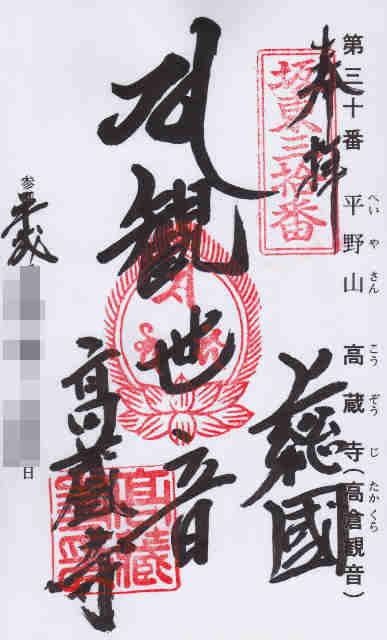 第三十番 平野山 高蔵寺(高倉観音)
へい や さん こう ぞう じ たかくら
奉拝
坂東三拾番
上総國
観世音
高蔵寺
参 平成 日